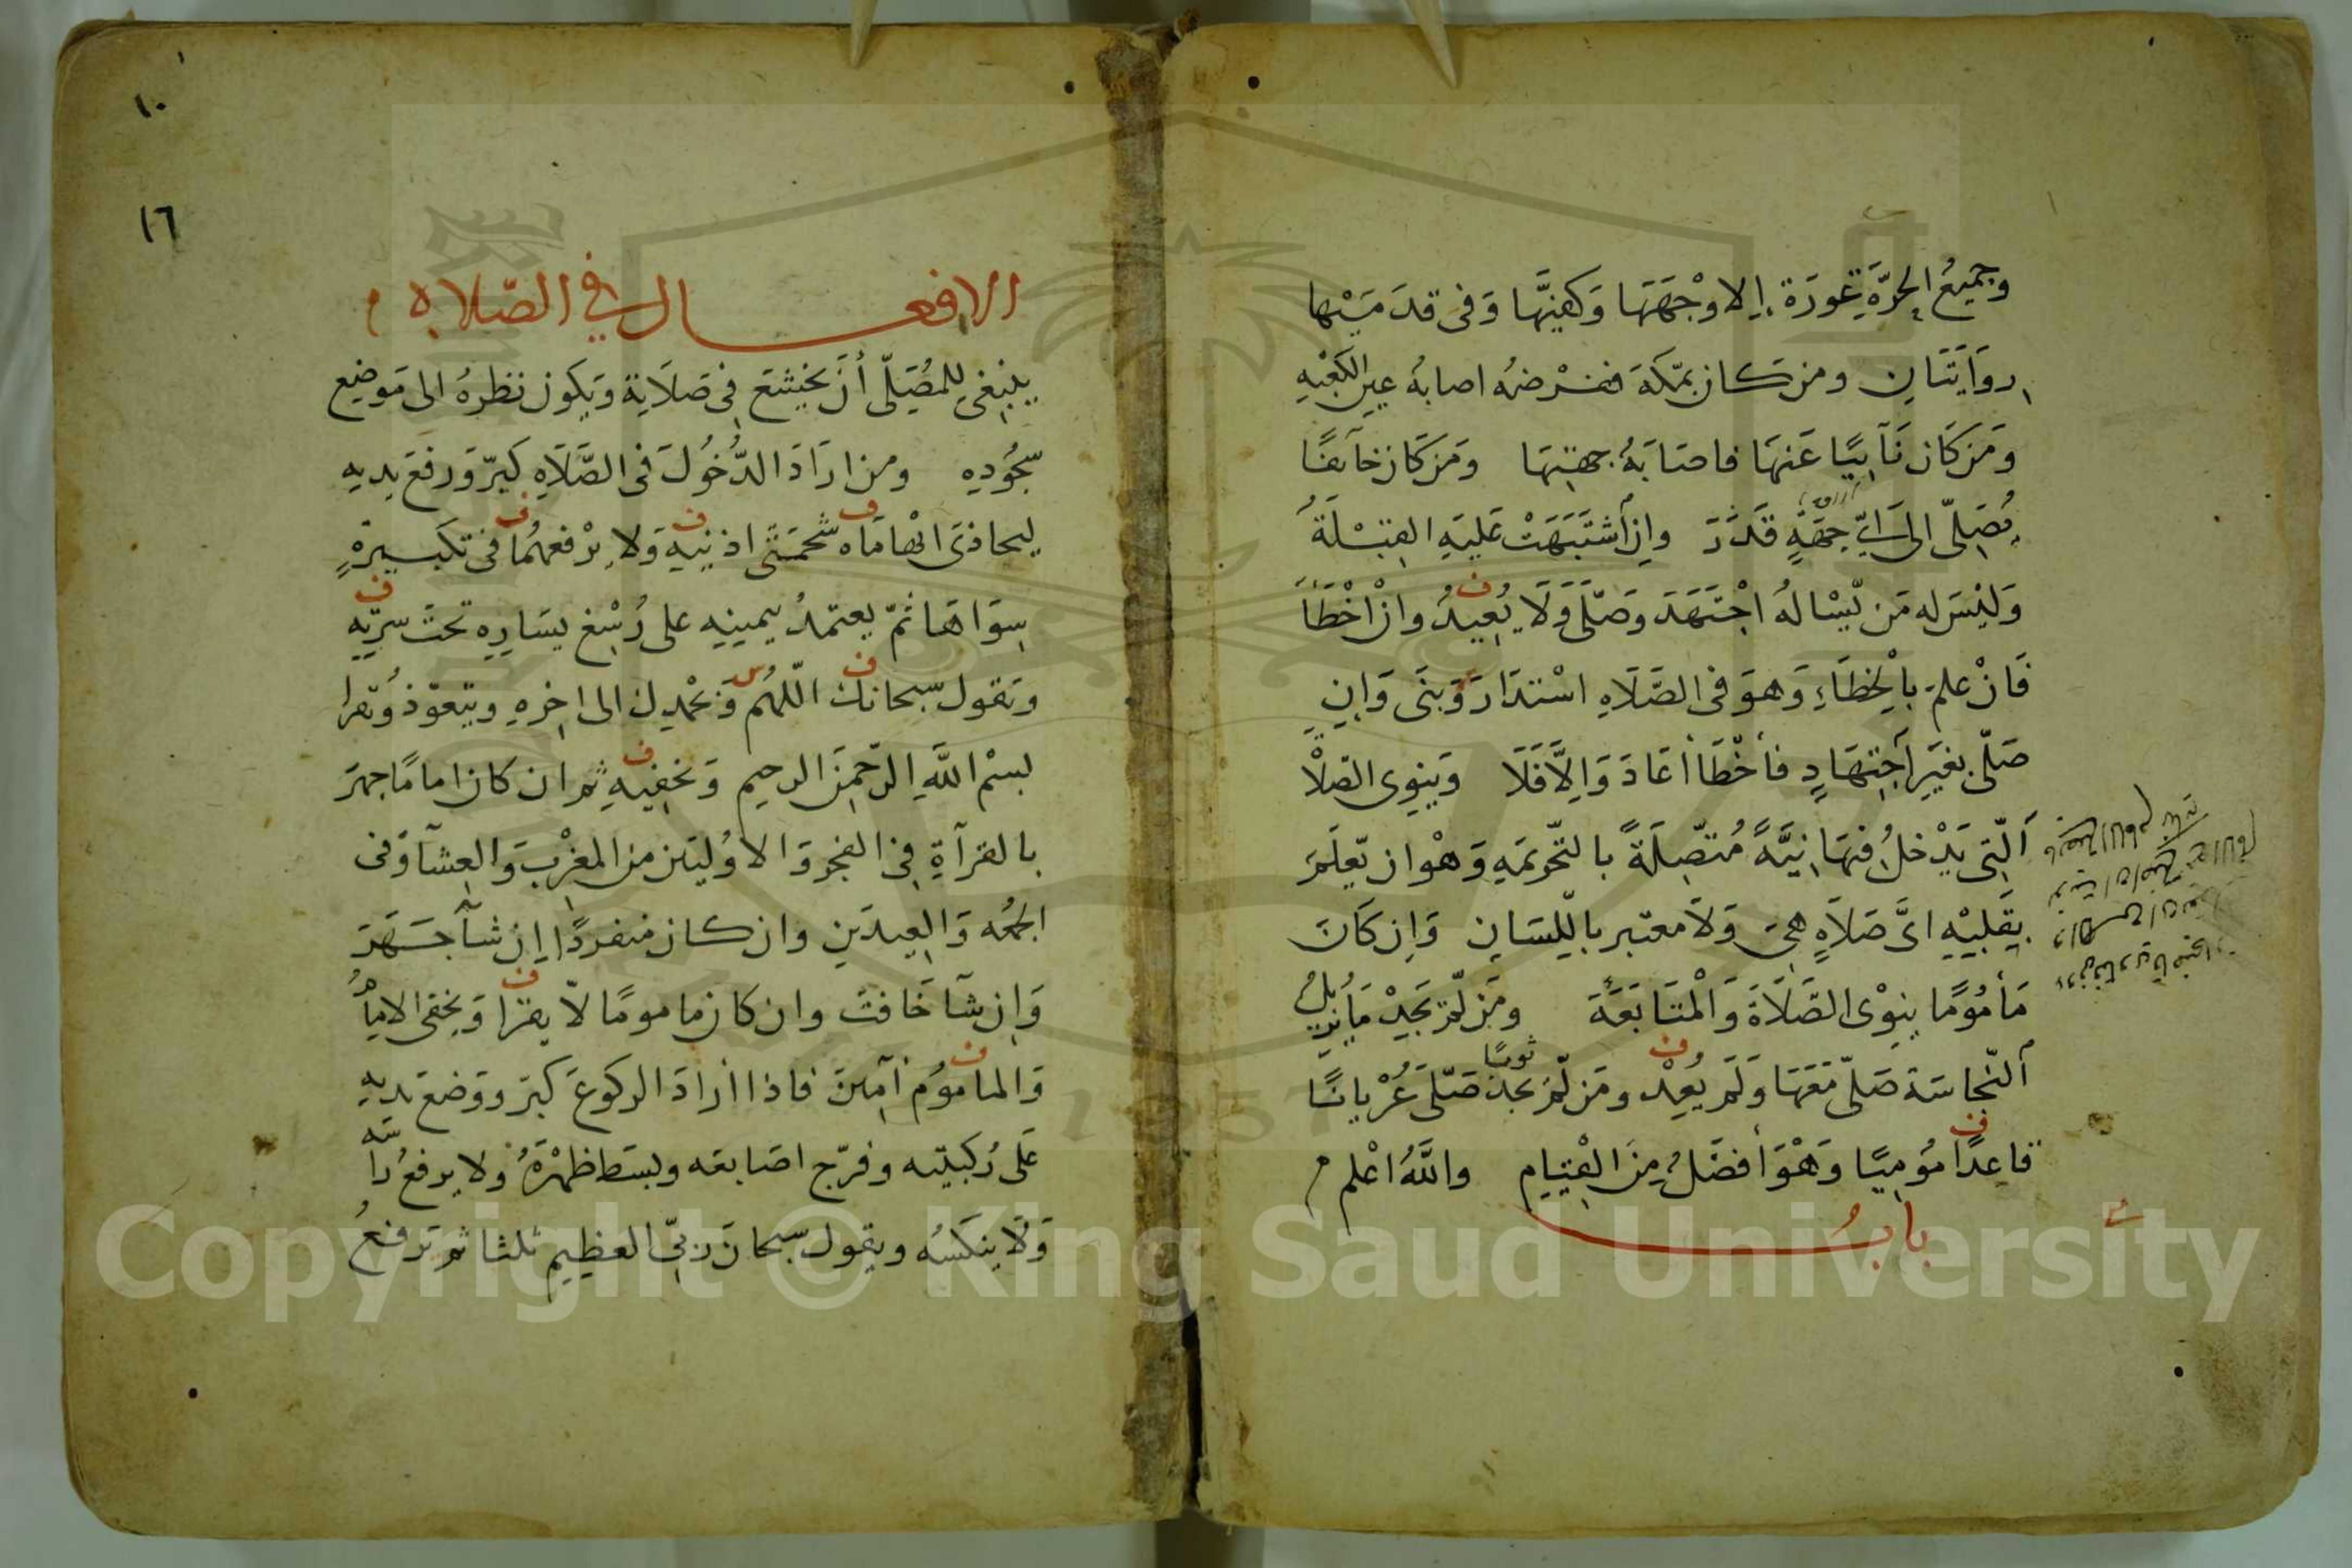 وجميع الحرّة عورة الا وجهها وكفيها وفى قدميها
روايتان ومن كان بمكة ففرضه اصابة عين الكعبه
ومن كان نآئيًا عنها فاصابة جهتها ومن كان خآئفًا
يصلّى الى اىّ جهةٍ قدر وان اشتبهت عليه القبلة
وليس له من يّساله اجتهد وصلّى ولا يعيد وان اخطأ
ف
فان علم بالخطاء وهو فى الصلاه استدار وبنى وان
صلّى بغير اجتهادٍ فأخطأ أعاد والّا فلا وينوى الصلاة
الّتى يدخل فيها نيّةً متّصلةً بالتّحريمه وهو ان يّعلم
بقلبه اىّ صلاهٍ هى ولا معتبر بالّلسان وان كان
مأمومًا ينوى الصّلاة والمتابعة ومن لّم يجد ما يزيل
النّجاسة صلّى معها ولم يعد ومن لّم يجد ثوبًا صلّى عريانًا
ف
قاعدًا موميًا وهو أفضل من القيام والله اعلم
ف
باب
١٠
١٦
الافعال فى الصّلاه
ينبغى للمصلّى أن يخشع فى صلاته ويكون نظره الى موضع
سجوده ومن اراد الدّخول فى الصّلاه كبّر ورفع يديه
ليحاذى ابهاماه شحمتى اذنيه ولا يرفعهما فى تكبيرةٍ
ف ف ف
سواها ثمّ يعتمد بيمينه على رسغ يساره تحت سرّته
ف
ويقول سبحانك اللّهم وبحمدك الى اخره ويتعوّذ ويقرا
ف س
بسم الله الرّحمن الرحيم ويخفيه ثم ان كان امامًا جهر
ف
بالقرآة فى الفجر والاوليين من المغرب والعشآ وفى
الجمعه والعيدين وان كان منفردًا إن شآ جهر
وان شآ خافت وان كان مامومًا لّا يقرا ويخفى الامام
ف
والماموم آمين فاذا أراد الركوع كبّر ووضع يديه
ف
على ركبتيه وفرّج اصابعه وبسط ظهره ولا يرفع راسه
ولا ينكسه ويقول سبحان ربّى العظيم ثلثا ثم يرفع
Copyright © King Saud University
1957